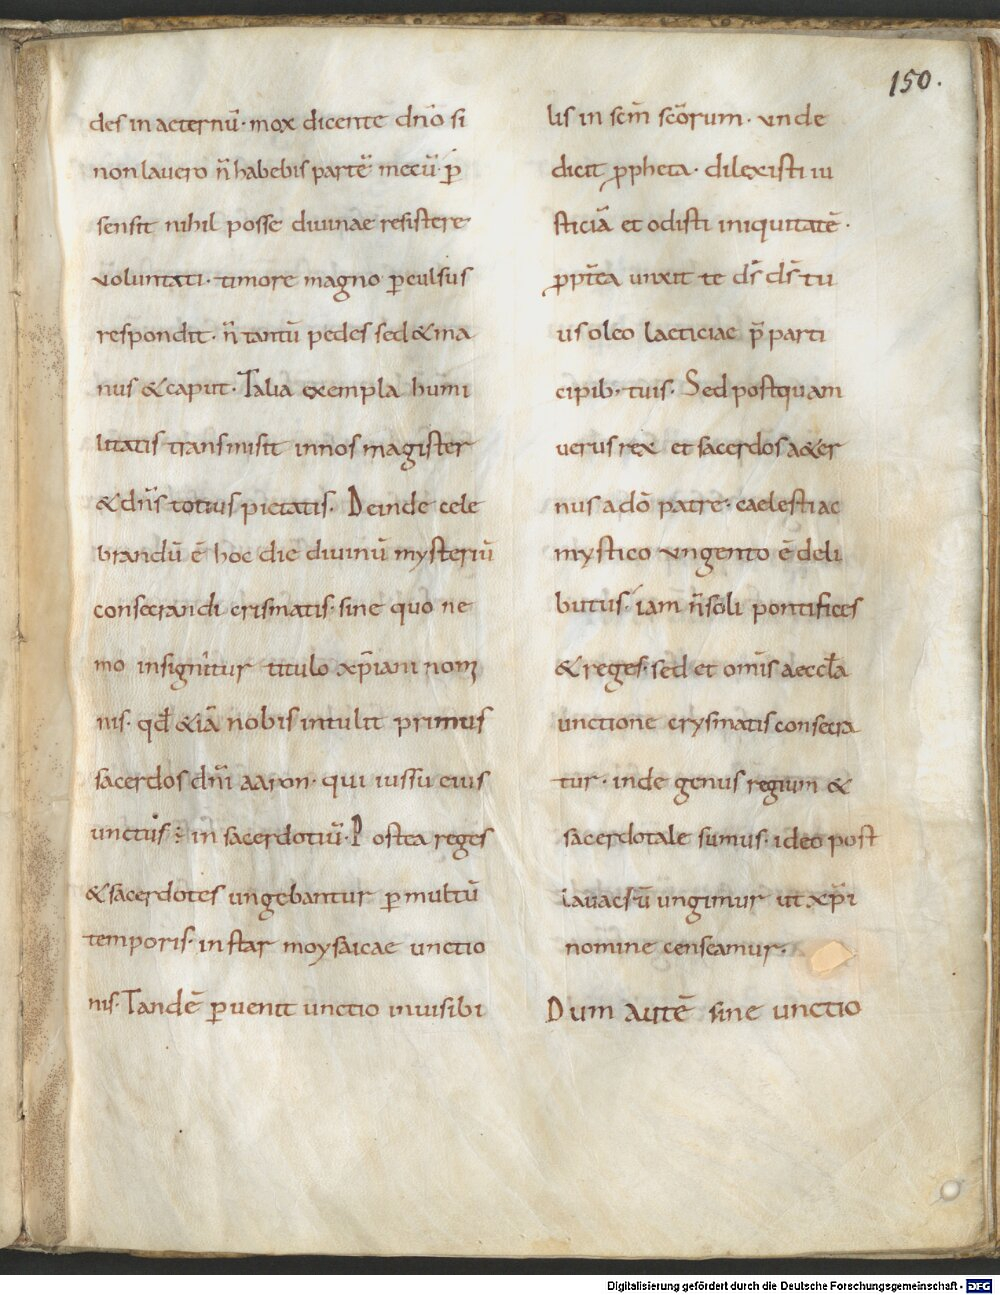 150.
des in aeternū· mox dicente dn̄o si
non lauero n̄ habebis partē mecū· p̄
sensit nihil posse diuinae resistere
voluntati· timore magno ꝑculsus
respondit· n̄ tantū pedes sed & ma
nus & caput· Talia exempla humi
litatis transmisit in nos magister
& dn̄s totius pietatis· Deinde cele
brandū ē hoc die diuinū mysteriū
consecrandi crismatis· sine quo ne
mo insignitur titulo xp̄iani nomi
nis· qd̄ &iā nobis intulit primus
sacerdos dn̄i aaron· qui iussu eius
unctus ÷ in sacerdotiū· Postea reges
& sacerdotes ungebantur ꝑ multū
temporis· instar moysaicae unctio
nis· Tandē ꝑuenit unctio inuisibi
lis in scm̄ scōrum· vnde
dicit ꝓpheta· dilexisti iu
sticiā et odisti iniquitatē·
ꝓpt̄ea unxit te ds̄ ds̄ tu
us oleo laeticiae p̄ parti
cipib; tuis· Sed postquam
uerus rex et sacerdos a&er
nus a dō patre· caelesti ac
mystico vngento ē deli
butus· iam n̄ soli pontifices
& reges· sed et omīs aeccl̄a
unctione crysmatis consecra
tur· inde genus regium &
sacerdotale sumus· ideo post
lauacrū ungimur ut xp̄i
nomine censeamur·
Dum autē sine unctio
Digitalisierung gefördert durch die Deutsche Forschungsgemeinschaft - DFG